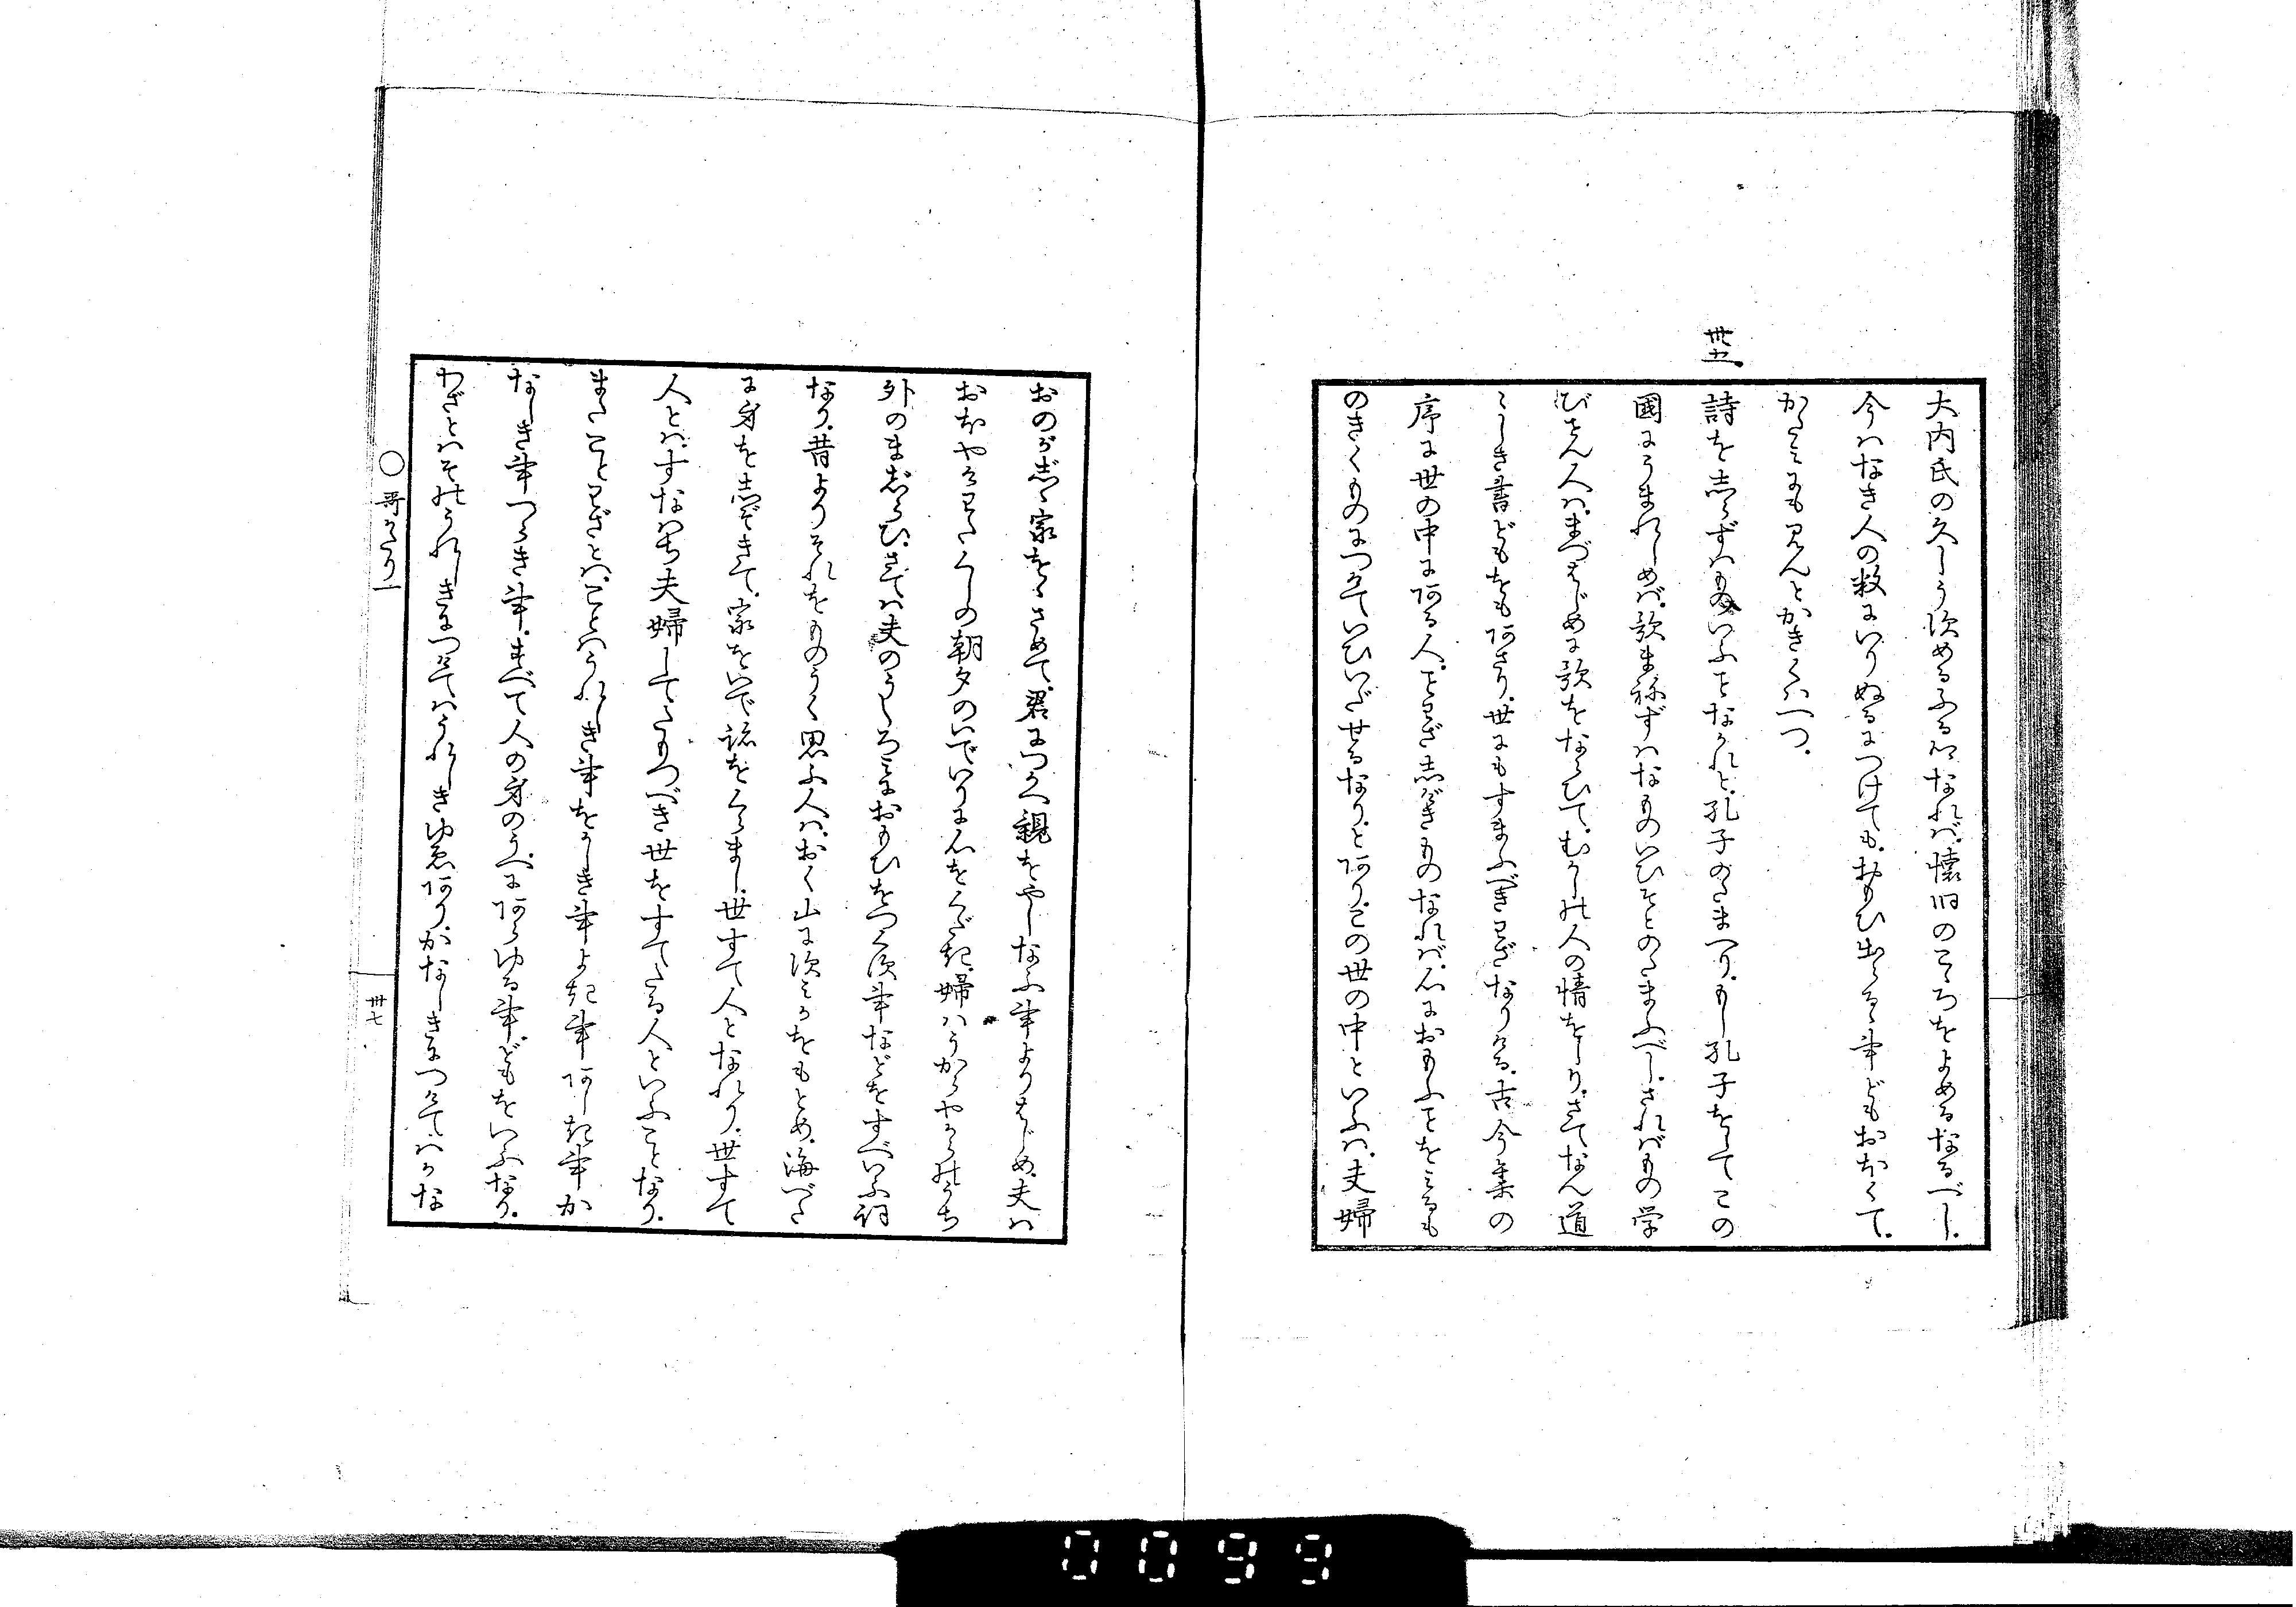 大内氏の久しう須めるふる郷なれば、懐旧のこゝろをよめるなるべし。
今ハなき人の数にいりぬるにつけても、おもひ出らるゝ事どもおほくて、
かたミにも見んとかきくハへつ。
卅五
詩を志らずハものいふことなかれと、孔子のたまへり。もし孔子をしてこの
國にうまれしめば、歌まねずハなものいひそとのたまふべし。さればもの学
びせん人ハ、まづはじめに歌をならひて、むかしの人の情をしり、さてなん道
〻しき書どもをも阿さり、世にもすまふべきわざなりける。古今集の
序に世の中に阿る人、ことわざ志げきものなれば、心におもふことをミるも
のきくものにつけていひいだせるなりと阿り。この世の中といふハ、夫婦
おのが志ゝ家をゝさめて、君につかへ親をやしなふ事よりはじめ、夫ハ
おほやけわたくしの朝夕のいでいりに心をくだき、婦ハうからやからのうち
外のまじらひ、さてハ夫のうしろミにおもひをつくす事などをすべいふ詞
なり。昔よりそれをものうく思ふ人ハ、おく山に須ミかをもとめ、海づら
に身を志ぞきて、家をいで跡をくらまし、世すて人となれり。世すて
人とハ、すなハち夫婦してたもつべき世をすてたる人といふことなり。
またことわざとハ、ことハうれしき事をかしき事よき事阿しき事か
なしき事つらき事、すべて人の身のうへに阿らゆる事どもをいふなり。
わざとハそのうれしきにつけてハうれしきゆゑ阿り、かなしきにつけてハかな
〇哥がたり一
卅七
0099